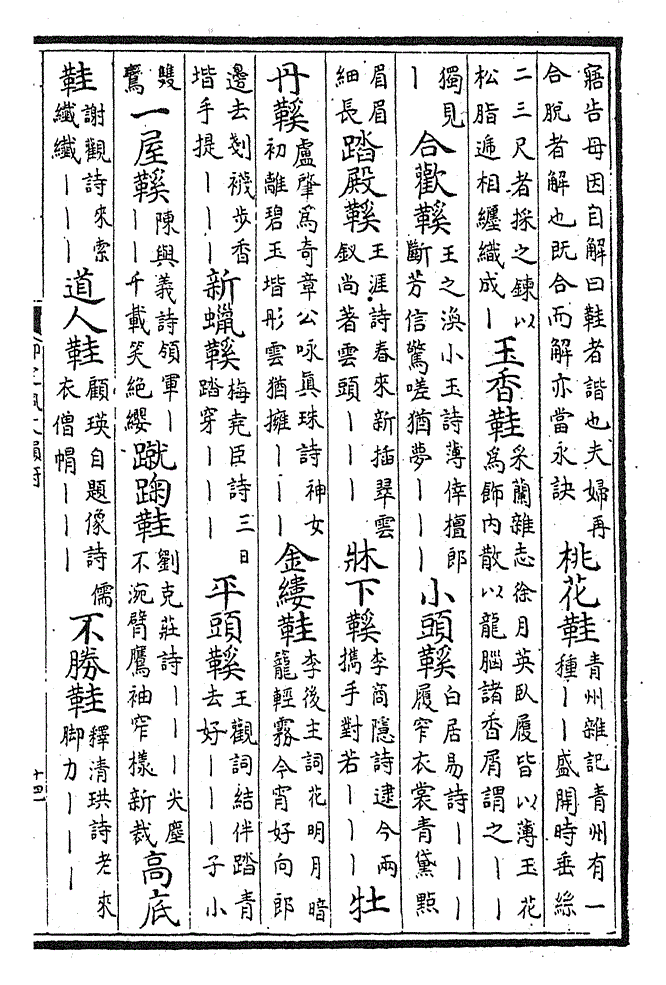 寤告母因自解曰鞋者諧也夫婦再合脫者解也既合而解亦當永訣桃花鞋青州雜記青州有一種丨丨盛開時垂絲
二三尺者採之鍊以松脂遞相纏織成丨玉香鞋采蘭雜志徐月英臥履皆以薄玉花為飾內散以龍腦諸香屑謂之丨丨
獨見丨合歡鞵王之渙小玉詩薄倖檀郎斷芳信驚嗟猶夢丨丨丨小頭鞵白居易詩丨丨丨履窄衣裳青黛點
眉眉細長踏殿鞵王涯詩春來新插翠雲釵尚著雲頭丨丨丨牀下鞵李商隱詩逮今兩攜手對若丨丨丨牡
丹鞵盧肇為奇章公咏真珠詩神女初離碧玉堦彤雲猶擁丨丨丨金縷鞋李後主詞花明月暗籠輕霧今宵好向郎
邊去剗襪步香堦手提丨丨丨新蠟鞵梅堯臣詩三日踏穿丨丨丨平頭鞵王觀詞結伴踏青去好丨丨丨子小
雙鸞一屋鞵陳與義詩領軍丨丨丨千載笑絕纓蹴踘鞋劉克莊詩丨丨丨尖塵不涴臂鷹袖窄樣新裁高底
鞋謝觀詩來索纖纖丨丨丨道人鞋顧瑛自題像詩儒衣僧帽丨丨丨不勝鞋釋清珙詩老來脚力丨丨丨